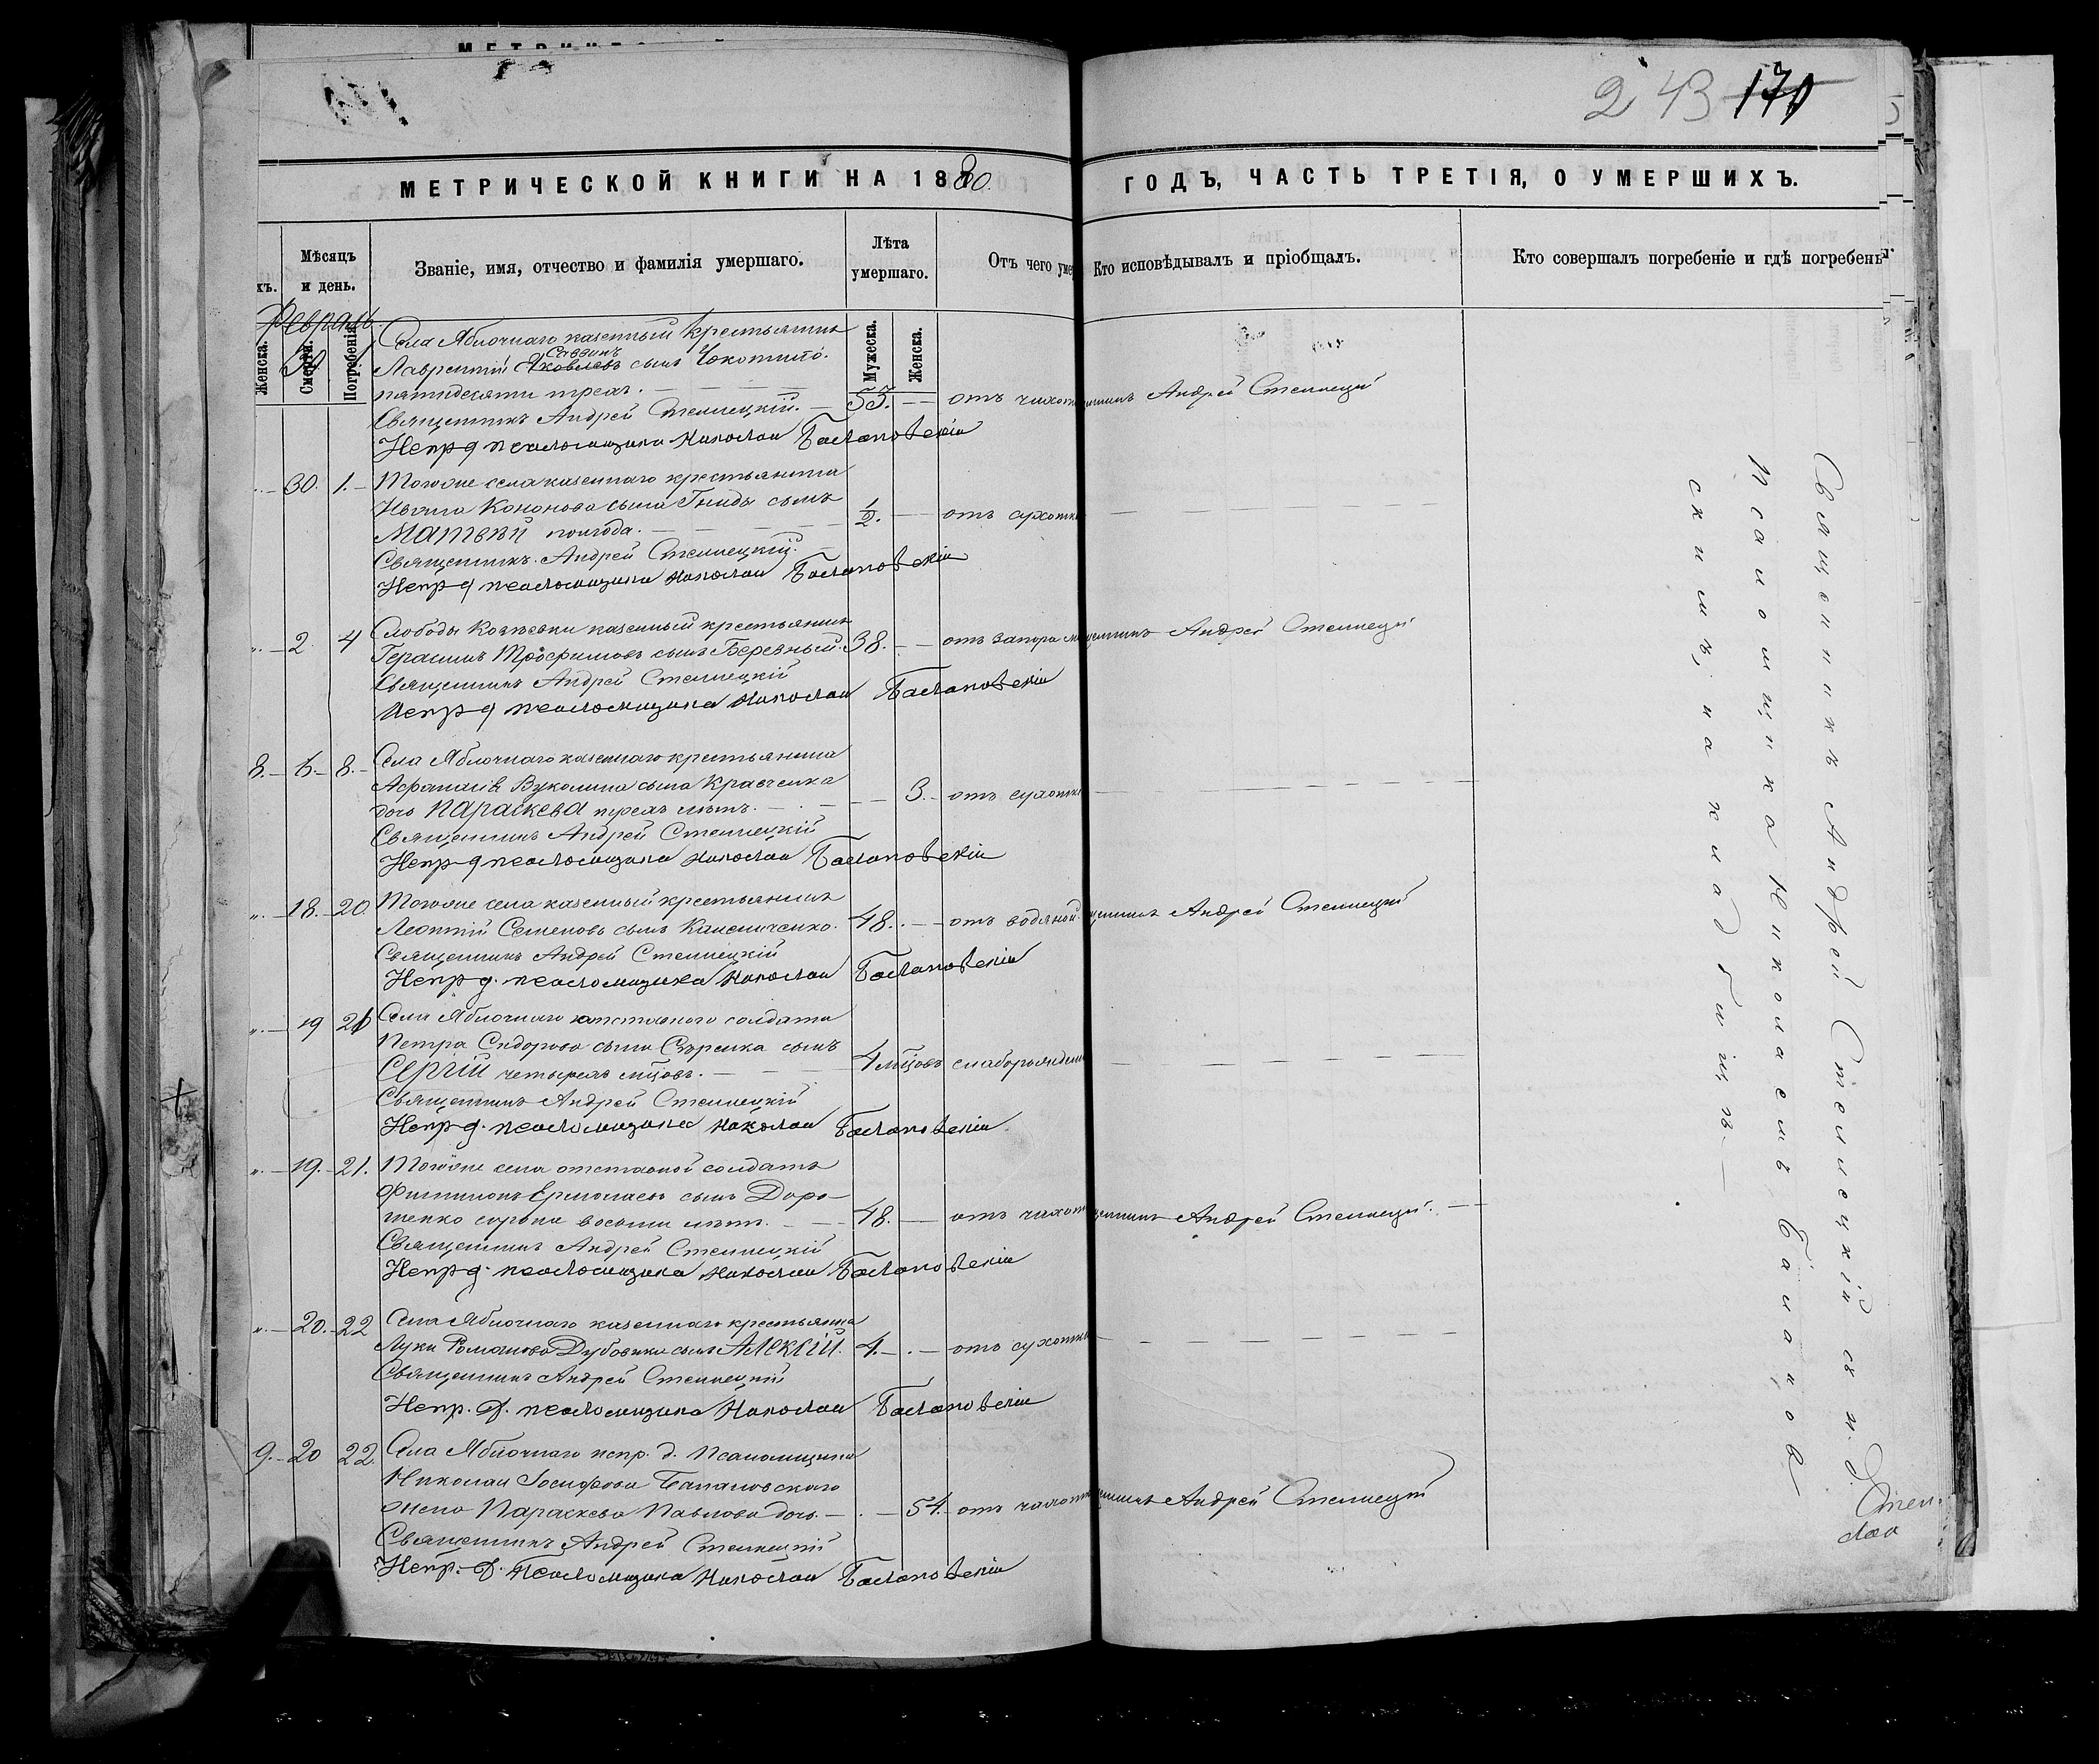 243 170
МЕТРИЧЕСКОЙ КНИГИ НА 1880.
ГОДЪ, ЧАСТЬ ТРЕТІЯ, О УМЕРШИХЪ.
хъ.
Мѣсяцъ и день.
Званіе, имя, отчество и фамилія умершаго.
Лѣта умершаго.
Отъ чего уме
Кто исповѣдывалъ и пріобщалъ.
Кто совершалъ погребеніе и гдѣ погребены
Женска.
Смерти.
Погребенія.
Мужеска.
Женска.
Февраль
30 1
Села Яблочнаго казенный крестьянинъ
Саввинъ
Лаврентій Яковлевъ сынъ
пятидесяти трехъ.
53. отъ чахот
Андрей Стеллецкій
Священникъ Андрей Стеллецкій.
Испр д псаломщика Николай Балановскій
30. 1. Тогоже села казеннаго крестьянина
Ивана Кононова сына Гниды сынъ
Матвѣй полгода.
1/2. отъ сухотки
Священникъ Андрей Стеллецкій.
Испр д псаломщика Николай Балановскій
2 4 Слободы Козѣевки казенный крестьянинъ
Герасимъ Трофимовъ сынъ Березный.
38. отъ запора
Андрей Стеллецкій
Священникъ Андрей Стеллецкій
Испр д псаломщика Николай Балановскій
8. 6. 8. Села Яблочнаго казеннаго крестьянина
Афанасія Вуколина сына Кравченка
дочь Параскева трехъ лѣтъ.
3. отъ сухотки
Священникъ Андрей Стеллецкій
Испр д псаломщика Николай Балановскій
18. 20. Тогоже села казенный крестьянинъ
Леонтій Семеновъ сынъ
48. отъ водяной
Андрей Стеллецкій
Священникъ Андрей Стеллецкій
Испр д. псаломщика Николай Балановскій
19 21 Села Яблочнаго отставного солдата
Петра Сидорова сына сынъ
Сергій четырехъ мцовъ.
4 мцовъ слаборожден
Священникъ Андрей Стеллецкій
Испр д. псаломщика Николай Балановскій
19. 21. Тогоже села отставной солдатъ
Филимонъ Ермолаевъ сынъ Доро-
шенко сорока восьми лѣтъ.
48. отъ чахот
Андрей Стеллецкій.
Священникъ Андрей Стеллецкій
Испр д. псаломщика Николай Балановскій
20. 22 Села Яблочнаго казеннаго крестьянина
Луки Романова Дубовика сынъ Алексій.
4. отъ сухотки
Священникъ Андрей Стеллецкій
Испр. д. псаломщика Николай Балановскій
9. 20 22. Села Яблочнаго испр. д. псаломщика
Николая Іосифова Балановскаго
жена Параскева Павлова дочь.
54. отъ чахот
Андрей Стеллецкій
Священникъ Андрей Стеллецкій
Испр. д. псаломщика Николай Балановскій
Священникъ Андрей Стеллецкій съ и. д.
псаломщика Николаемъ Баланов
скимъ, на кладбищѣ.